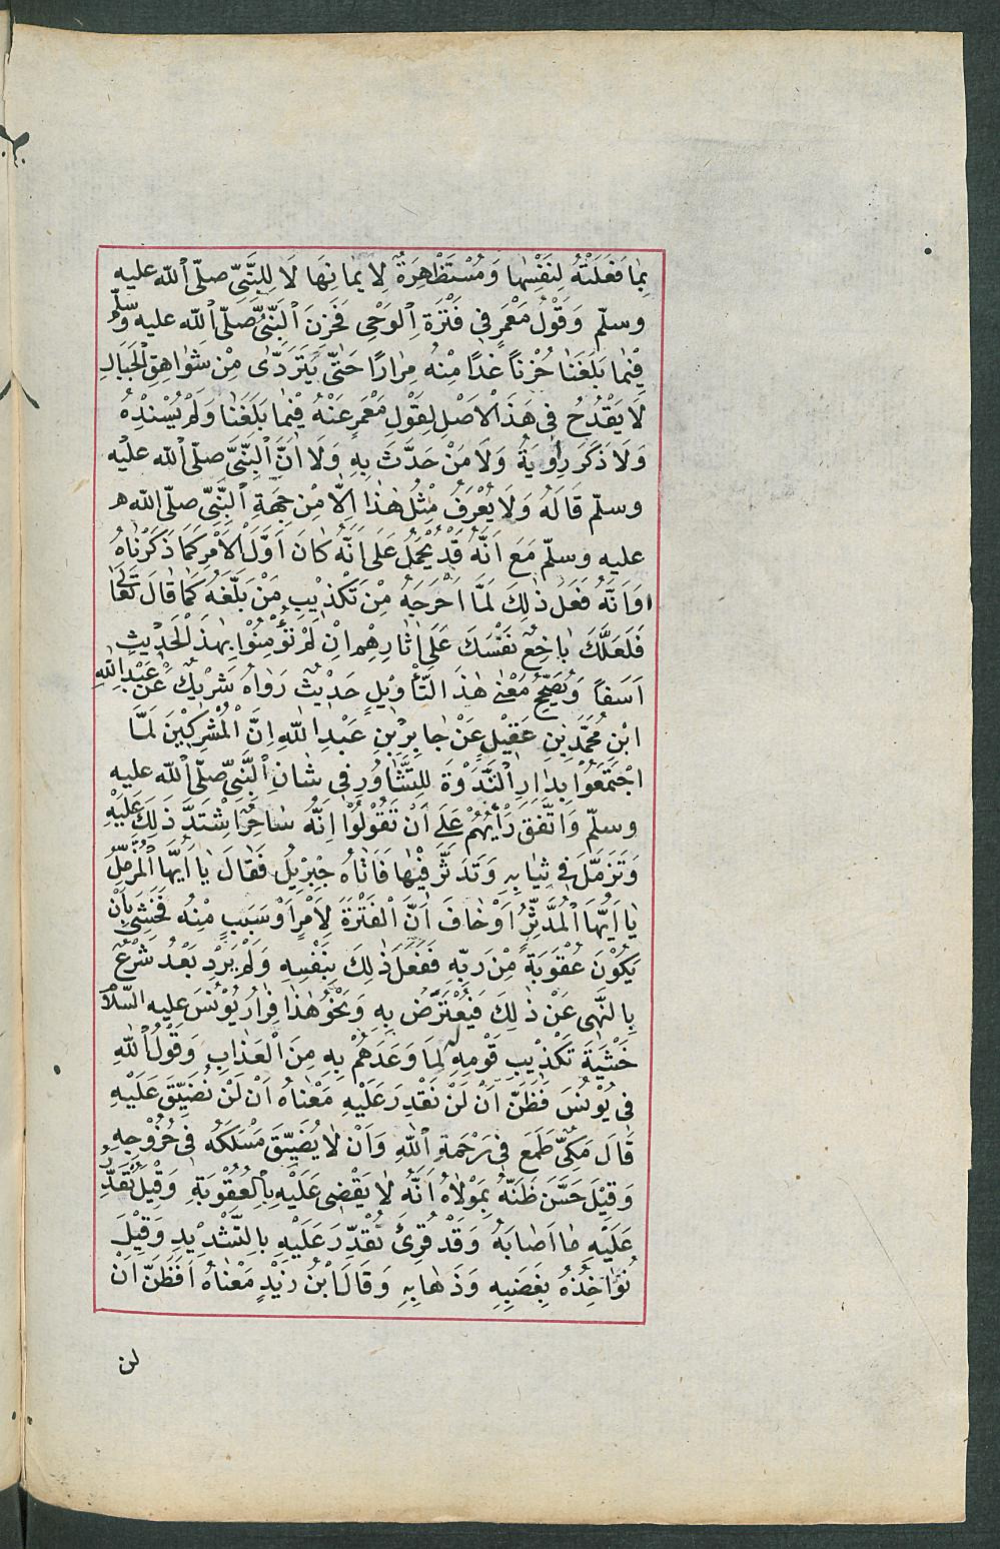 بِمَا فَعَلَتْهُ لِنَفْسِهَا وَمُسْتَظْهِرَةٌ لِاِيمَانِهَا لَا لِلنَّبِيِّ صلّى اللّه عليه
وسلّم وَقَوْلُ مَعْمَرٍ فِي فَتْرَةِ الْوَحْيِ فَحَزِنَ النَّبِيُّ صلّى اللّه عليه وسلّم
فِيْمَا بَلَغَنَا حُزْنًا غَدَا مِنْهُ مِرَارًا حَتّٰى يَتَرَدّٰى مِنْ شَوَاهِقِ الْجِبَالِ
لَا يَقْدَحُ فِي هَذَا الْاَصْلِ لِقَوْلِ مَعْمَرٍ عَنْهُ فِيْمَا بَلَغَنَا وَلَمْ يُسْنِدْهُ
وَلَا ذَكَرَ رِوَايَةً وَلَا مَنْ حَدَّثَ بِهِ وَلَا اَنَّ النَّبِيَّ صلّى اللّه عليه
وسلّم قَالَهُ وَلَا يُعْرَفُ مِثْلُ هٰذَا اِلَّا مِنْ جِهَةِ النَّبِيِّ صلّى اللّه
عليه وسلّم مَعَ اَنَّهُ قَدْ يُحْمَلُ عَلَى اَنَّهُ كَانَ اَوَّلَ الْاَمْرِ كَمَا ذَكَرْنَاهُ
اَوْ اَنَّهُ فَعَلَ ذٰلِكَ لَمَّا اَحْرَجَهُ مِنْ تَكْذِيْبِ مَنْ بَلَّغَهُ كَمَا قَالَ تَعَالٰى
فَلَعَلَّكَ بَاخِعٌ نَفْسَكَ عَلَى اٰثَارِهِمْ اِنْ لَمْ يُؤْمِنُوْا بِهٰذَا الْحَدِيْثِ
اَسَفًا وَيُصَحِّحُ مَعْنٰى هٰذَا التَّأْوِيْلِ حَدِيْثٌ رَوَاهُ شَرِيْكٌ عَنْ عَبْدِ اللّٰهِ
ابْنِ مُحَمَّدِ بْنِ عَقِيْلٍ عَنْ جَابِرِ بْنِ عَبْدِ اللّٰهِ اِنَّ الْمُشْرِكِيْنَ لَمَّا
اجْتَمَعُوْا بِدَارِ النَّدْوَةِ لِلتَّشَاوُرِ فِي شَانِ النَّبِيِّ صلّى اللّه عليه
وسلّم وَاتَّفَقَ رَأْيُهُمْ عَلَى اَنْ تَقُوْلُوْا اِنَّهُ سَاحِرٌ اشْتَدَّ ذَلِكَ عَلَيْهِ
وَتَزَمَّلَ فِي ثِيَابِهِ وَتَدَثَّرَ فِيْهَا فَاَتَاهُ جِبْرِيْلُ فَقَالَ يَا اَيُّهَا الْمُزَّمِّلُ
يَا اَيُّهَا الْمُدَّثِّرُ اَوْ خَافَ اَنَّ الْفَتْرَةَ لِاَمْرٍ اَوْ سَبَبٍ مِنْهُ فَخَشِيَ اَنْ
يَكُوْنَ عُقُوْبَةً مِنْ رَبِّهِ فَفَعَلَ ذٰلِكَ بِنَفْسِهِ وَلَمْ يَرِدْ بَعْدُ شَرْعٌ
بِالنَّهْيِ عَنْ ذٰلِكَ فَيُعْتَرَضُ بِهِ وَنَحْوُ هٰذَا فِرَارُ يُوْنُسَ عليه السّلام
خَشْيَةَ تَكْذِيْبِ قَوْمِهِ لَهُ لِمَا وَعَدَهُمْ بِهِ مِنَ الْعَذَابِ وَقَوْلُ اللّٰهِ
فِي يُوْنُسَ فَظَنَّ اَنْ لَنْ نَقْدِرَ عَلَيْهِ مَعْنَاهُ اَنْ لَنْ نُضَيِّقَ عَلَيْهِ
قَالَ مَكِّيٌّ طَمِعَ فِي رَحْمَةِ اللّٰهِ وَاَنْ لَا يُضَيِّقَ مَسْلَكَهُ فِي خُرُوْجِهِ
وَقِيْلَ حَسَّنَ ظَنَّهُ بِمَوْلَاهُ اَنَّهُ لَا يَقْضِي عَلَيْهِ بِالْعُقُوْبَةِ وَقِيْلَ نُقَدِّرُ
عَلَيْهِ مَا اَصَابَهُ وَقَدْ قُرِئَ نُقَدِّرَ عَلَيْهِ بِالتَّشْدِيْدِ وَقِيْلَ
نُؤَاخِذُهُ بِغَضَبِهِ وَذَهَابِهِ وَقَالَ ابْنُ زَيْدٍ مَعْنَاهُ اَفَظَنَّ اَنْ
لن